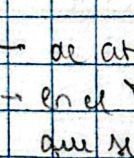 → de at
→ en el
que s